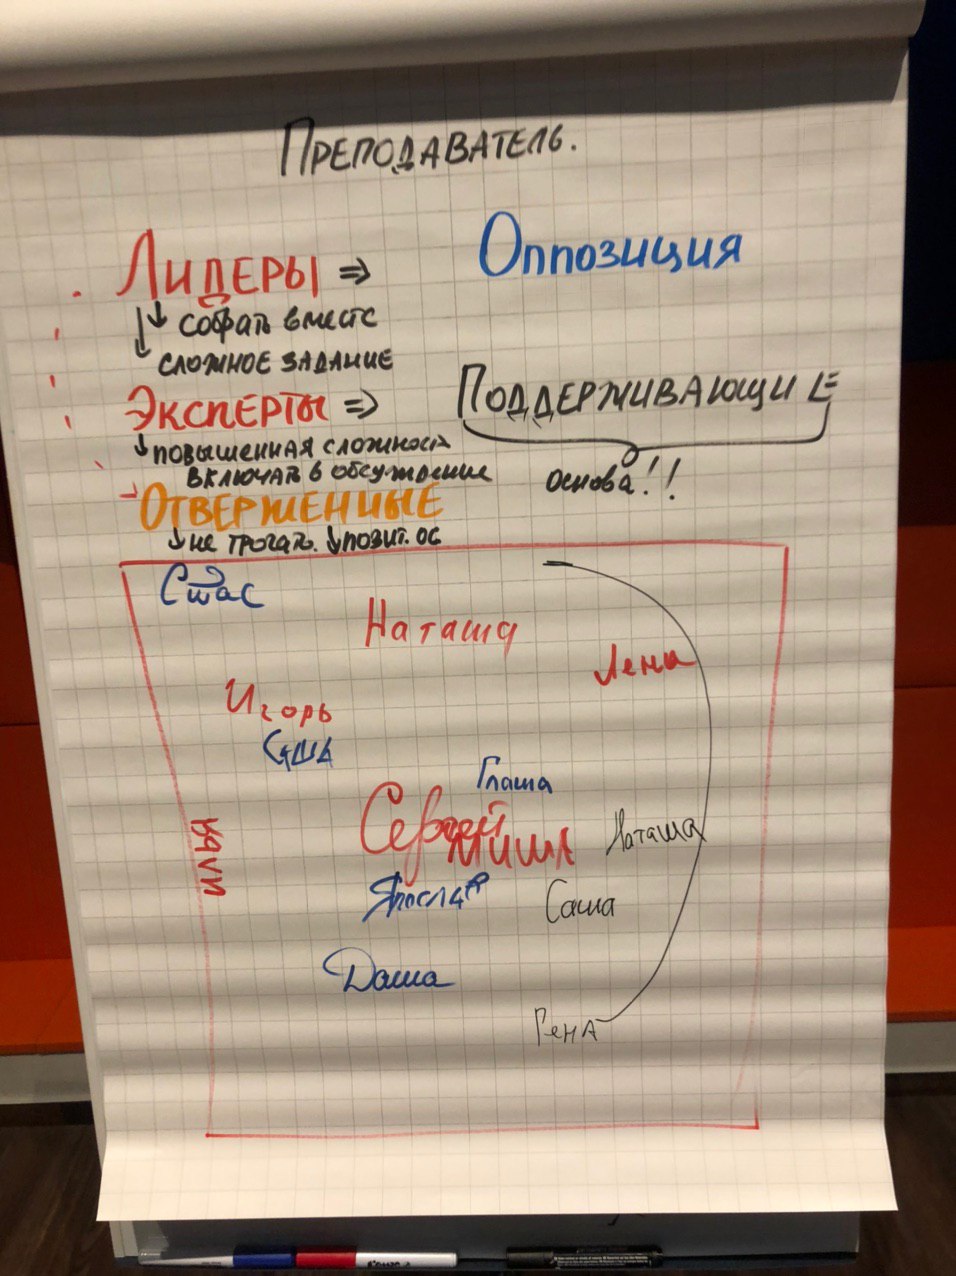 Преподаватель.
Лидеры ⇒ Оппозиция
↓ собрать вместе
↓ сложное задание
Эксперты ⇒ Поддерживающие
↓ повышенная сложность
включать в обсуждение
основа!!
Отверженные
↓ не трогать. ↓ позит. ос
Стас
Наташа
Лена
Игорь
Саша
Глаша
Сергей
Миша
Наташа
Ярослав
Саша
Даша
Гена